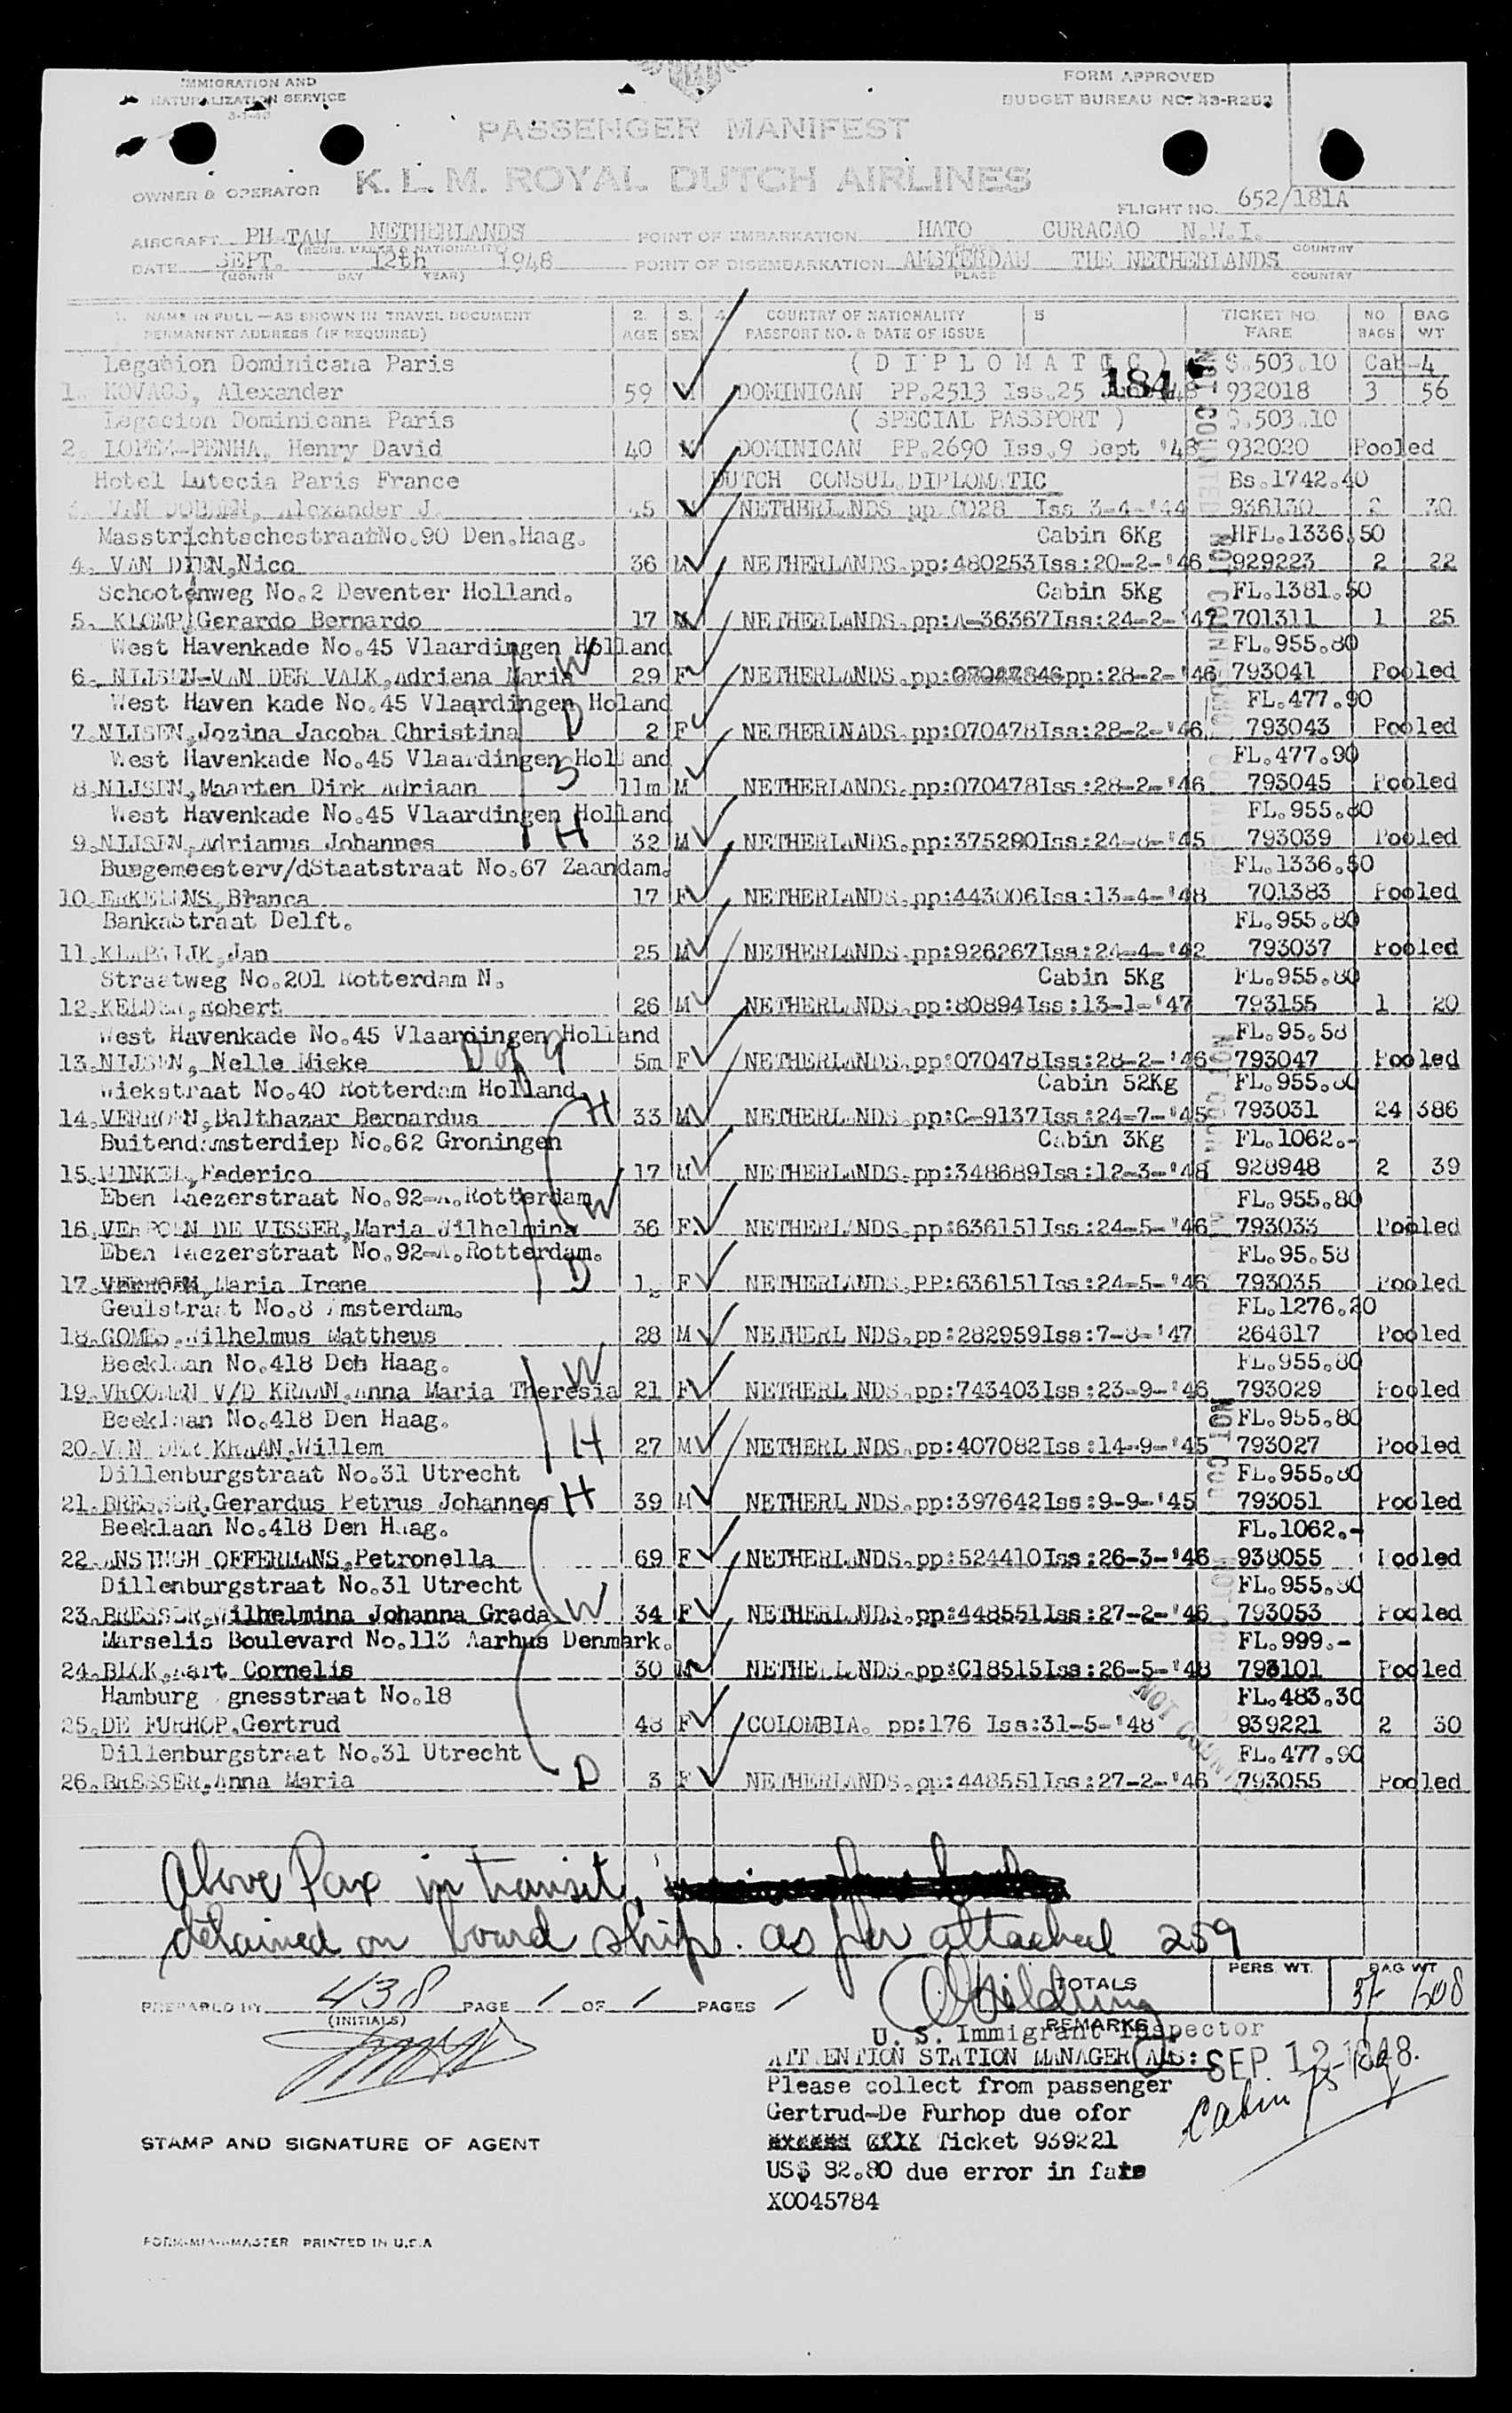 IMMIGRATION AND
NATURALIZATION SERVICE
FORM APPROVED
BUDGET BUREAU NO. 43-R283
PASSENGER MANIFEST
OWNER & OPERATOR K. L. M. ROYAL DUTCH AIRLINES
FLIGHT NO. 652/181A
AIRCRAFT PH-TAW NETHERLANDS POINT OF EMBARKATION HATO CURACAO N.W.I.
(REGIS. MARKS & NATIONALITY) PLACE COUNTRY
DATE SEPT. 12th 1948 POINT OF DISEMBARKATION AMSTERDAM THE NETHERLANDS
(MONTH DAY YEAR) PLACE COUNTRY
1. NAME IN FULL—AS SHOWN IN TRAVEL DOCUMENT 2. 3. 4. COUNTRY OF NATIONALITY 5 TICKET NO. NO. BAG
PERMANENT ADDRESS (IF REQUIRED) AGE SEX PASSPORT NO. & DATE OF ISSUE FARE BAGS WT
Legabion Dominicana Paris ( D I P L O M A T I C ) $.503.10 Cab-4
1. KOVACS, Alexander 59 M DOMINICAN PP.2513 Iss.25 184 48 932018 3 56
Legacion Dominicana Paris ( SPECIAL PASSPORT ) $.503.10
2. LOPEZ-PENHA, Henry David 40 M DOMINICAN PP.2690 Iss.9 Sept '48 932020 Pooled
Hotel Lutecia Paris France DUTCH CONSUL DIPLOMATIC Bs.1742.40
Alexander J. 45 NETHERLANDS pp Iss 3-4-'44 936130 2 30
MasstrichtschestraatNo.90 Den.Haag. Cabin 6Kg HFL.1336.50
4. VAN DIEN,Nico 36 M NETHERLANDS.pp:480253Iss:20-2-'46 929223 2 22
Schootenweg No.2 Deventer Holland. Cabin 5Kg FL.1381.50
5. KLOMP,Gerardo Bernardo 17 M NETHERLANDS.pp:A-36367Iss:24-2-'47 701311 1 25
West Havenkade No.45 Vlaardingen Holland FL.955.80
6. NIJSEN-VAN DER VALK,Adriana Maria W 29 F NETHERLANDS.pp: pp:28-2-'46 793041 Pooled
West Haven kade No.45 Vlaardingen Holand FL.477.90
7.NIJSEN,Jozina Jacoba Christina D 2 F NETHERLNADS.pp:070478Iss:28-2-'46 793043 Pooled
West Havenkade No.45 Vlaardingen Holl and FL.477.90
8.NIJSEN,Maarten Dirk Adriaan S 11m M NETHERLANDS.pp:070478Iss:28-2-'46 793045 Pooled
West Havenkade No.45 Vlaardingen Holland FL.955.80
9.NIJSEN,Adrianus Johannes H 32 M NETHERLANDS.pp:375290Iss:24-8-'45 793039 Pooled
Burgemeesterv/dStaatstraat No.67 Zaandam. FL.1336.50
10. 17 F NETHERLANDS.pp:443006Iss:13-4-'48 701383 Pooled
Bankastraat Delft. FL.955.80
11.KLAPWIJK,Jan 25 M NETHERLANDS.pp:926267Iss:24-4-'42 793037 Pooled
Straatweg No.201 Rotterdam N. Cabin 5Kg FL.955.80
12.KELDER,Robert 26 M NETHERLANDS.pp:80894Iss:13-1-'47 793155 1 20
West Havenkade No.45 Vlaardingen Holland FL.95.58
13.NIJSEN, Nelle Mieke D of 9 5m F NETHERLANDS.pp:070478Iss:28-2-'46 793047 Pooled
Wiekstraat No.40 Rotterdam Holland. Cabin 52Kg FL.955.80
14.VERHOEN,Balthazar Bernardus H 33 M NETHERLANDS.pp:C-9137Iss:24-7-'45 793031 24 386
Buitendamsterdiep No.62 Groningen Cabin 3Kg FL.1062.-
15.WINKEL,Federico 17 M NETHERLANDS.pp:348689Iss:12-3-'48 928948 2 39
Eben Haezerstraat No.92-A.Rotterdam W FL.955.80
16.VERHOEN DE VISSER,Maria Wilhelmina 36 F NETHERLANDS.pp:636151Iss:24-5-'46 793033 Pooled
Eben Haezerstraat No.92-A.Rotterdam. FL.95.58
17.VERHOEN,Maria Irene D 1 F NETHERLANDS.PP:636151Iss:24-5-'46 793035 Pooled
Geulstraat No.8 Amsterdam. FL.1276.20
18.GOMES,Wilhelmus Mattheus 28 M NETHERL NDS.pp:282959Iss:7-8-'47 264617 Pooled
Beeklaan No.418 Deh Haag. W FL.955.80
19.VROOMEN V/D KRAAN,Anna Maria Theresia 21 F NETHERL NDS.pp:743403Iss:23-9-'46 793029 Pooled
Beeklaan No.418 Den Haag. FL.955.80
20.VAN DER KRAAN,Willem H 27 M NETHERL NDS.pp:407082Iss:14-9-'45 793027 Pooled
Dillenburgstraat No.31 Utrecht FL.955.80
21.BRESSER,Gerardus Petrus Johannes H 39 M NETHERL NDS.pp:397642Iss:9-9-'45 793051 Pooled
Beeklaan No.418 Den Haag. FL.1062.-
22.ANSINGH OFFERMANS,Petronella 69 F NETHERLANDS.pp:524410Iss:26-3-'46 938055 Pooled
Dillenburgstraat No.31 Utrecht FL.955.80
23.BRESSER,Wilhelmina Johanna Grada W 34 F NETHERLANDS.pp:448551Iss:27-2-'46 793053 Pooled
Marselis Boulevard No.113 Aarhus Denmark. FL.999.-
24. Cornelis 30 M NETHERLANDS.pp:C18515Iss:26-5-'48 793101 Pooled
Hamburg gnesstraat No.18 FL.483.30
25.DE FURHOP,Gertrud 48 F COLOMBIA. pp:176 Iss:31-5-'48 939221 2 30
Dillenburgstraat No.31 Utrecht FL.477.90
26.BRESSER,Anna Maria D 3 F NETHERLANDS.pp:448551Iss:27-2-'46 793055 Pooled
Above Pax in transit,
detained on board ship. as per attached 259
PERS WT. BAG WT
PREPARED BY 438 PAGE 1 OF 1 PAGES TOTALS 37 608
(INITIALS)
REMARKS
U. S. Immigrant Inspector
ATTENTION STATION MANAGER AMS: SEP 12 1948
Please collect from passenger
Gertrud-De Furhop due ofor
Ticket 939221
US$ 82.80 due error in fare
X0045784
Cabin 75 kg
STAMP AND SIGNATURE OF AGENT
PRINTED IN U.S.A